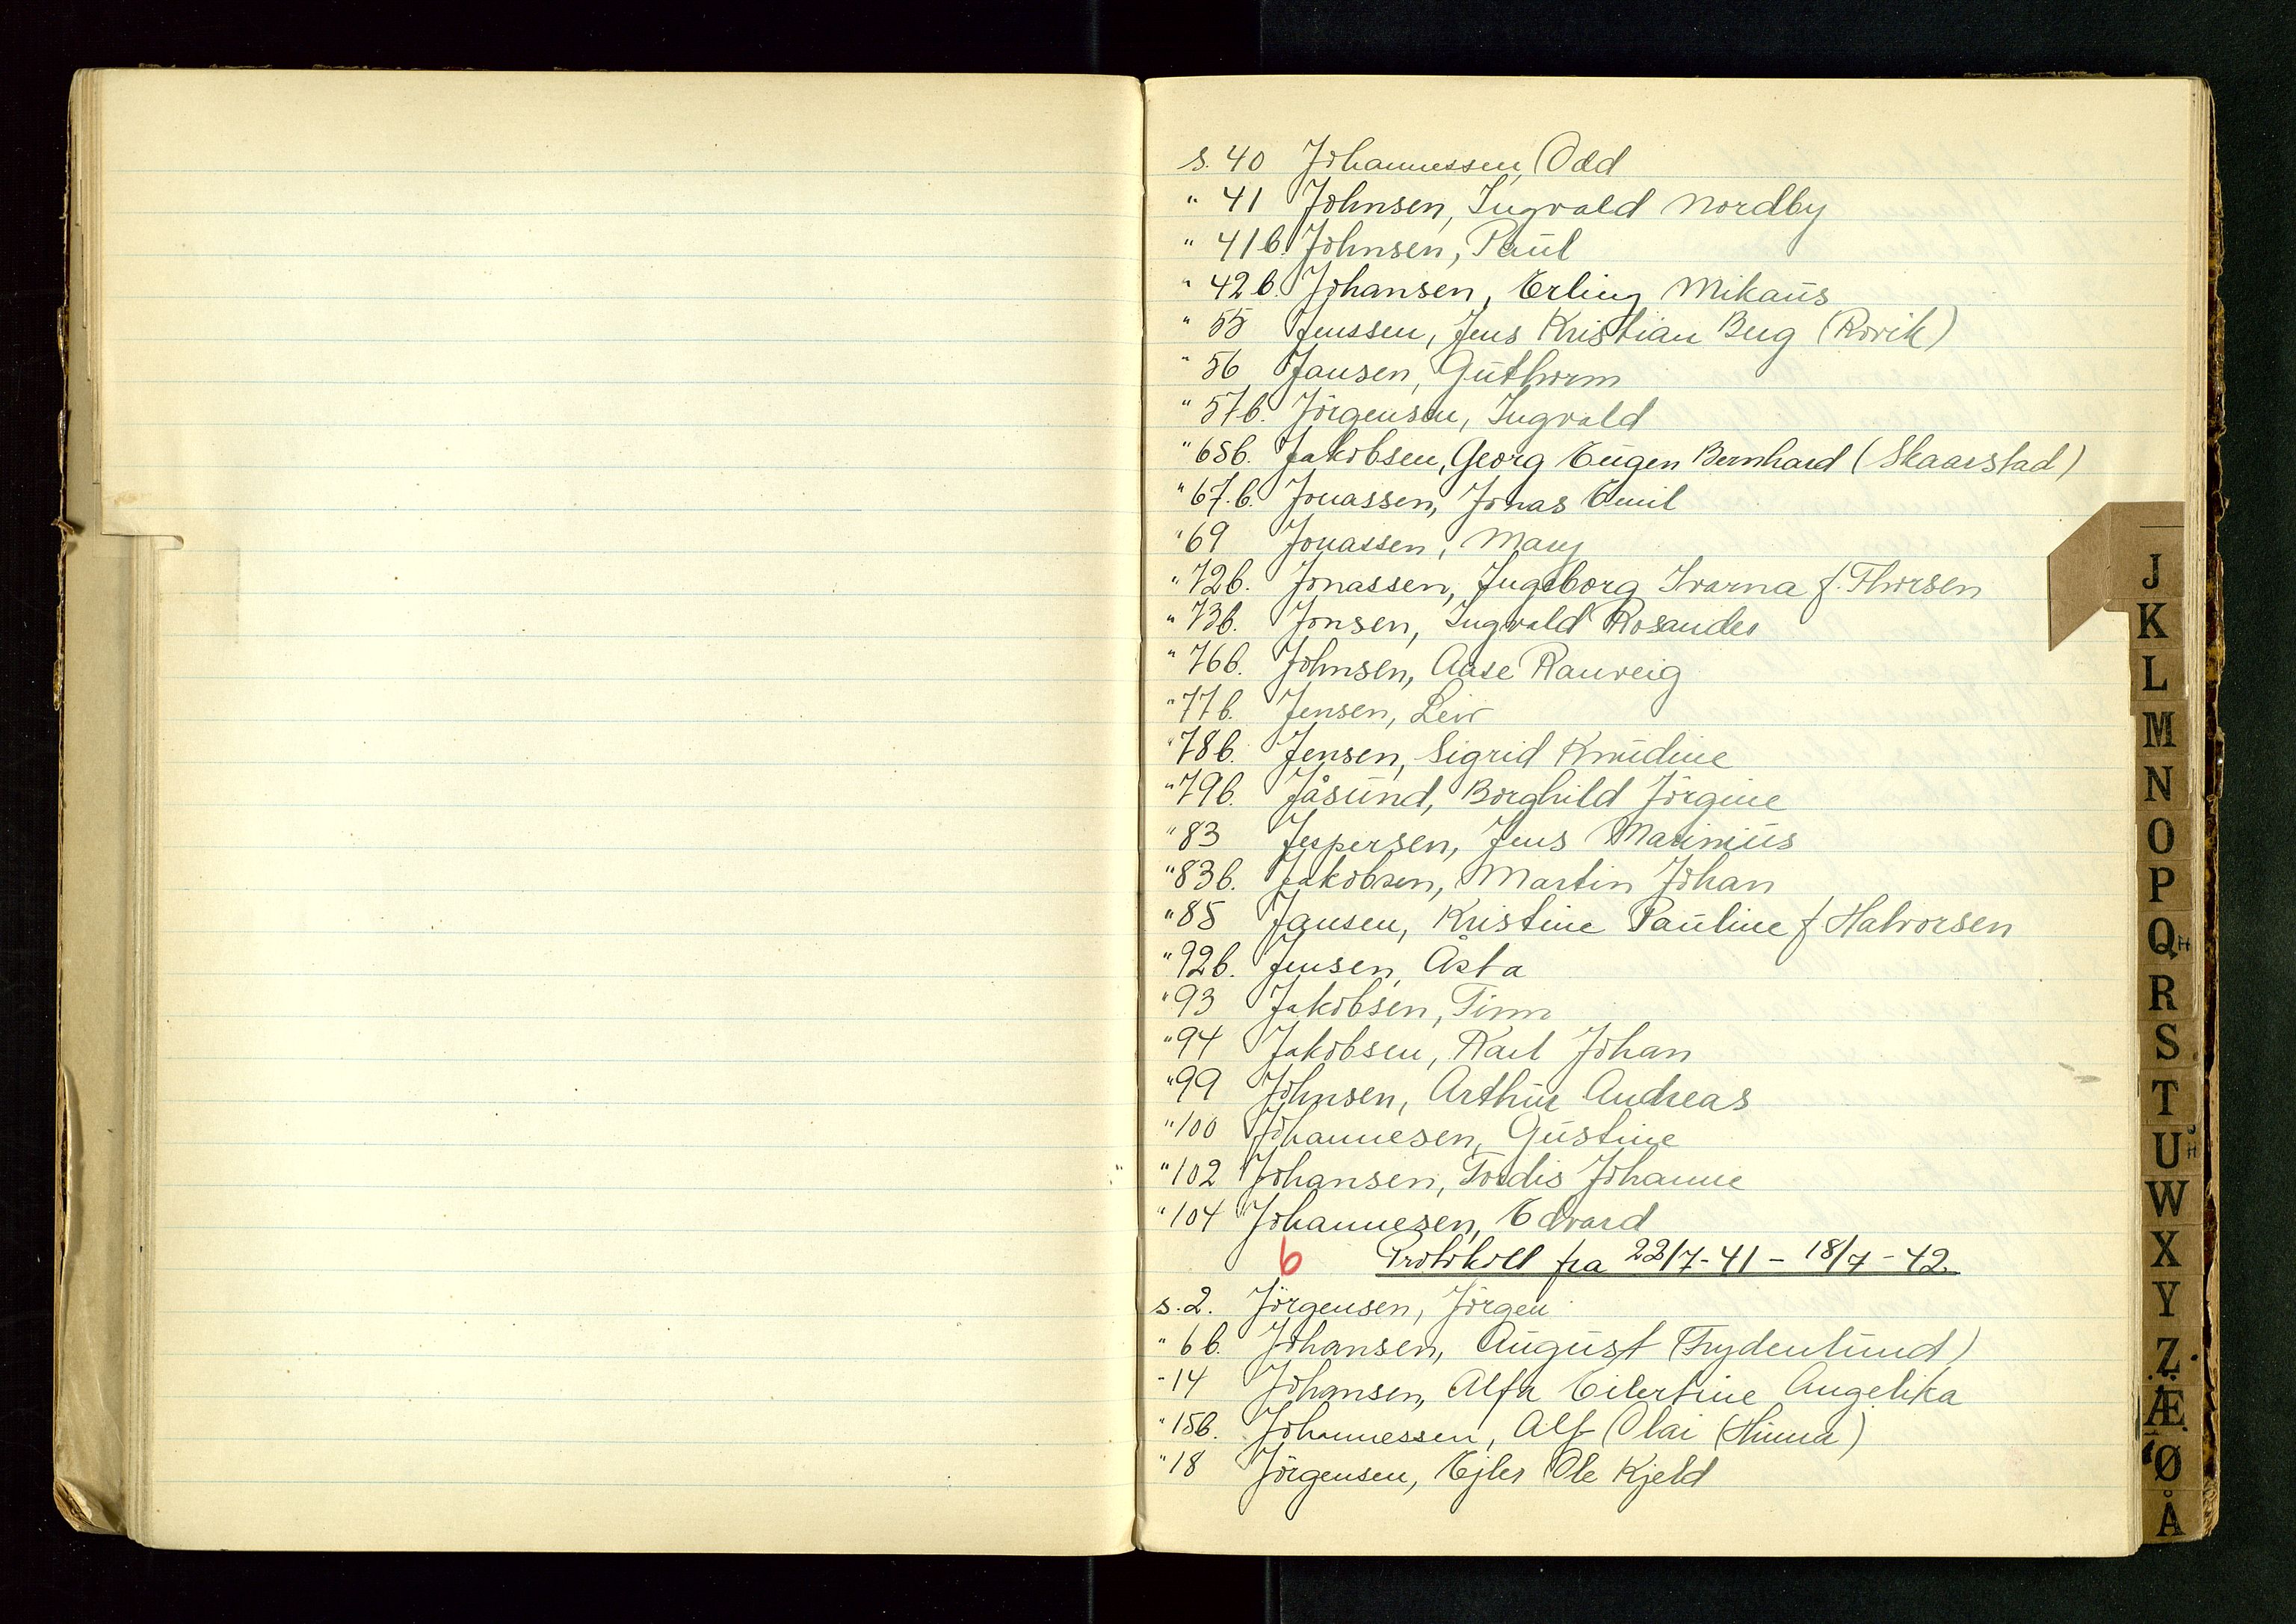 s. 40 Johannessen, Odd
" 41 Johnsen, Ingvald Nordby
" 41b. Johnsen, Paul
" 42b. Johansen, Erling Mikaüs
" 55 Jenssen, Jens Kristian Berg (Rovik)
" 56 Jansen, Guthorm
" 57b. Jörgensen, Ingvald
" 65b. Jakobsen, Georg Eugen Bernhard (Skaarstad)
" 67.b. Jonassen, Jonas Emil
" 69 Jonassen, Mary
" 72b. Jonassen, Ingeborg Ivarna f. Thorsen
" 73b. Jonsen, Ingvald Rosander
" 76b. Johnsen, Aase Ranveig
" 77b. Jensen, Leiv
" 78b. Jensen, Sigrid Knudine
" 79b. Jåsund, Borghild Jörgine
" 83 Jespersen, Jens Marinius
" 83b. Jakobsen, Martin Johan
" 85 Jansen, Kristine Pauline f. Halvorsen
" 92b. Jensen, Åsta
" 93 Jakobsen, Finn
" 94 Jakobsen, Karl Johan
" 99 Johnsen, Arthur Andreas
" 100 Johannesen, Gustine
" 102 Johansen, Tordis Johanne
" 104 Johannesen, Edvard
6 Protokoll fra 22/7-41 - 18/7-42.
s. 2. Jörgensen, Jörgen
" 6b. Johansen, August (Frydenlund)
" 14 Johansen, Alfa Eilertine Angelika
" 15b. Johannessen, Alf Olai (Hinna)
" 18 Jörgensen, Ejler Ole Kjeld
J
K
L
M
N
O
P
Q
R
S
T
U
W
X
Y
Z
Æ
Ø
Å